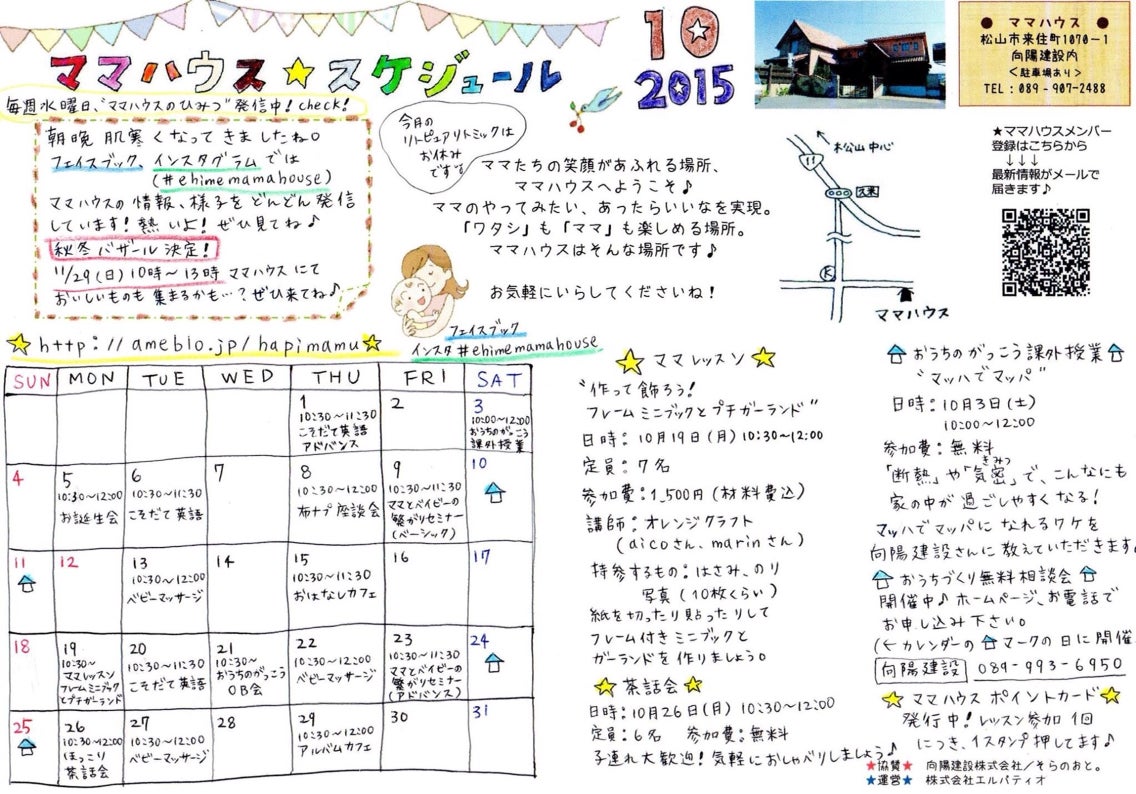 ママハウス★スケジュール
10
2015
● ママハウス ●
松山市来住町1070－1
向陽建設内
＜駐車場あり＞
TEL：089－907－2488
毎週水曜日、"ママハウスのひみつ"発信中！check！
朝晩 肌寒くなってきましたね。
フェイスブック、インスタグラムでは
(#ehimemamahouse)
ママハウスの情報、様子をどんどん発信
しています！熱いよ！ぜひ見てね♪
秋冬バザール決定！
11/29(日)10時～13時 ママハウスにて
おいしいものも集まるかも…？ぜひ来てね♪
今月の
リトピュアリトミックは
お休み
です
ママたちの笑顔があふれる場所、
ママハウスへようこそ♪
ママのやってみたい、あったらいいなを実現。
「ワタシ」も「ママ」も楽しめる場所。
ママハウスはそんな場所です♪
お気軽にいらしてくださいね！
フェイスブック
インスタ#ehimemamahouse
☆http://ameblo.jp/hapimamu☆
松山中心
11
久米
ママハウス
★ママハウスメンバー
登録はこちらから
↓↓↓
最新情報がメールで
届きます♪
SUN MON TUE WED THU FRI SAT
1
10:30～11:30
こそだて英語
アドバンス
2
3
10:00～12:00
おうちのがっこう
課外授業
4
5
10:30～12:00
お誕生会
6
10:30～11:30
こそだて英語
7
8
10:30～12:00
布ナプ座談会
9
10:30～11:30
ママとベイビーの
繋がりセミナー
(ベーシック)
10
11
12
13
10:30～12:00
ベビーマッサージ
14
15
10:30～11:30
おはなしカフェ
16
17
18
19
10:30～
ママレッスン
フレームミニブック
とプチガーランド
20
10:30～11:30
こそだて英語
21
10:30～
おうちのがっこう
OB会
22
10:30～12:00
ベビーマッサージ
23
10:30～11:30
ママとベイビーの
繋がりセミナー
(アドバンス)
24
25
26
10:30～12:00
ほっこり
茶話会
27
10:30～12:00
ベビーマッサージ
28
29
10:30～12:00
アルバムカフェ
30
31
☆ママレッスン☆
"作って飾ろう！
フレームミニブックとプチガーランド"
日時：10月19日(月)10:30～12:00
定員：7名
参加費：1,500円(材料費込)
講師：オレンジクラフト
(aicoさん、marinさん)
持参するもの：はさみ、のり
写真(10枚くらい)
紙を切ったり貼ったりして
フレーム付きミニブックと
ガーランドを作りましょう。
☆茶話会☆
日時：10月26日(月)10:30～12:00
定員：6名 参加費：無料
子連れ大歓迎！気軽におしゃべりしましょう♪
おうちのがっこう課外授業
"マッハでマッパ"
日時：10月3日(土)
10:00～12:00
参加費：無料
きみつ
「断熱」や「気密」で、こんなにも
家の中が過ごしやすくなる！
マッハでマッパになれるワケを
向陽建設さんに教えていただきます。
おうちづくり無料相談会
開催中♪ホームページ、お電話で
お申し込み下さい。
(←カレンダーのマークの日に開催
向陽建設 089-993-6950
☆ママハウスポイントカード☆
発行中！レッスン参加1回
につき、1スタンプ押してます♪
★協賛★ 向陽建設株式会社／そらのおと。
★運営★ 株式会社エルパティオ